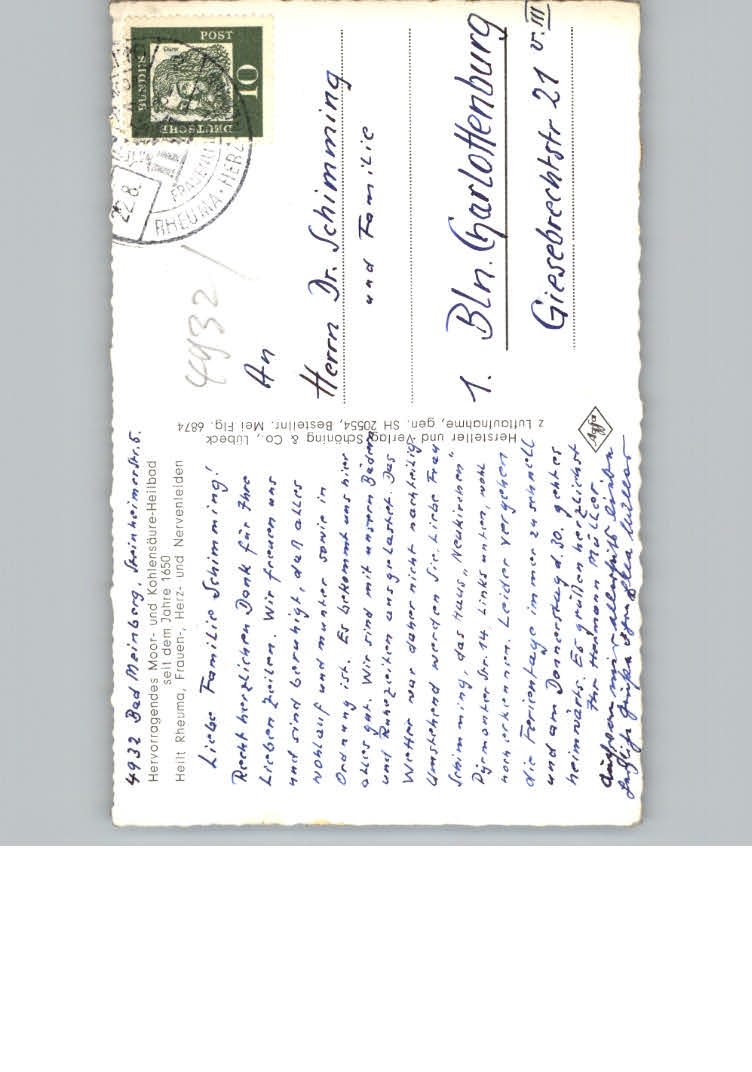 4932 Bad Meinberg, Steinheimerstr. 6.
Hervorragendes Moor- und Kohlensäure-Heilbad
seit dem Jahre 1650
Heilt Rheuma, Frauen-, Herz- und Nervenleiden
Liebe Familie Schimming!
Recht herzlichen Dank für Ihre
Lieben Zeilen. Wir freuen uns
und sind beruhigt, daß alles
wohlauf und munter sowie in
Ordnung ist. Es bekommt uns hier
alles gut. Wir sind mit unsern Bädern
und Ruhezeiten ausgelastet. Das
Wetter war daher nicht nachteilig
Umstehend werden Sie, Liebe Frau
Schimming, das Haus „Neukirchen"
Pyrmonter Str. 14, Links unten, wohl
noch erkennen. Leider vergehen
die Ferientage immer zu schnell
und am Donnerstag d. 30. geht es
heimwärts. Es grüßen herzlichst
Ihr Hermann Müller.
Auch von mir allerseits liebe
Grüße Müller
Hersteller und Verlag Schöning & Co., Lübeck
z Luftaufnahme, gen. SH 20554, Bestellnr. Mei Flg. 6874
Agfa
DEUTSCHE BUNDESPOST
10
Dürer
22.8.
FRAUEN
RHEUMA · HERZ
4932
An
Herrn Dr. Schimming
und Familie
1. Bln. Charlottenburg
Giesebrechtstr 21 v. III